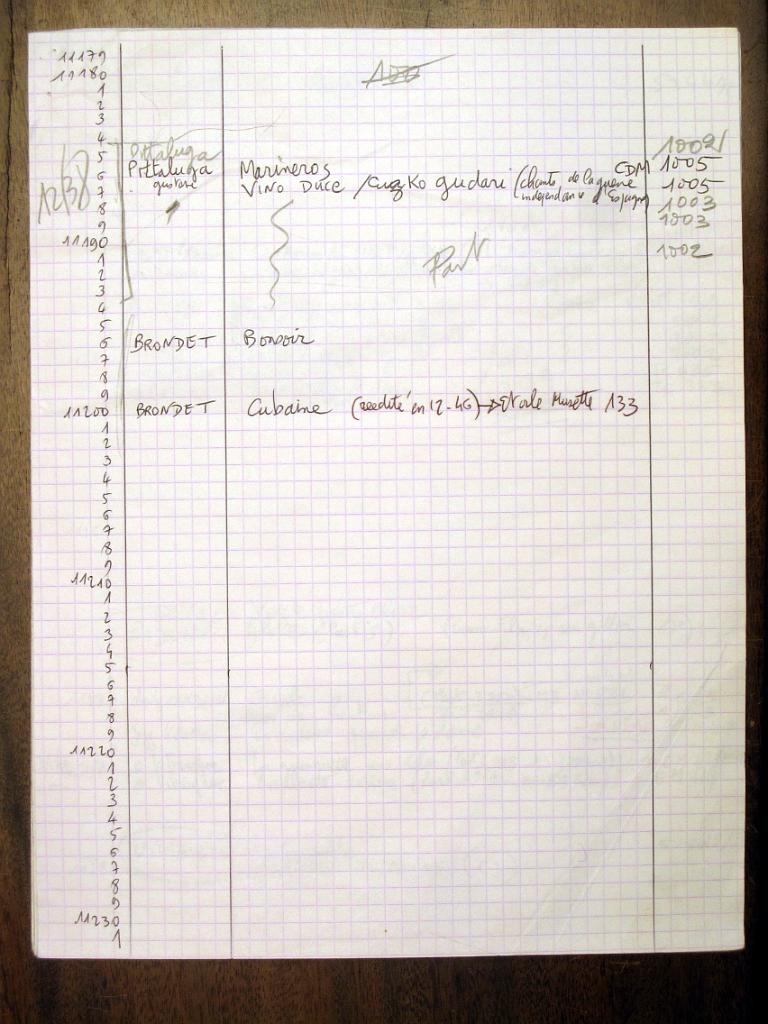 11179
11180
1
2
3
4 1002
5 Pittaluga
Pittaluga Marineros CDM 1005
6 gustave Vino Duce / Euzko gudari (chants de la guerre 1005
7 indépendance d'Espagne)
12/38
8 1003
9 1003
11190
1 Part 1002
2
3
4
5
6 BRONDET Bonsoir
7
8
9
11200 BRONDET Cubaine (réédité en 12-46) → Etoile Musette 133
1
2
3
4
5
6
7
8
9
11210
1
2
3
4
5
6
7
8
9
11220
1
2
3
4
5
6
7
8
9
11230
1